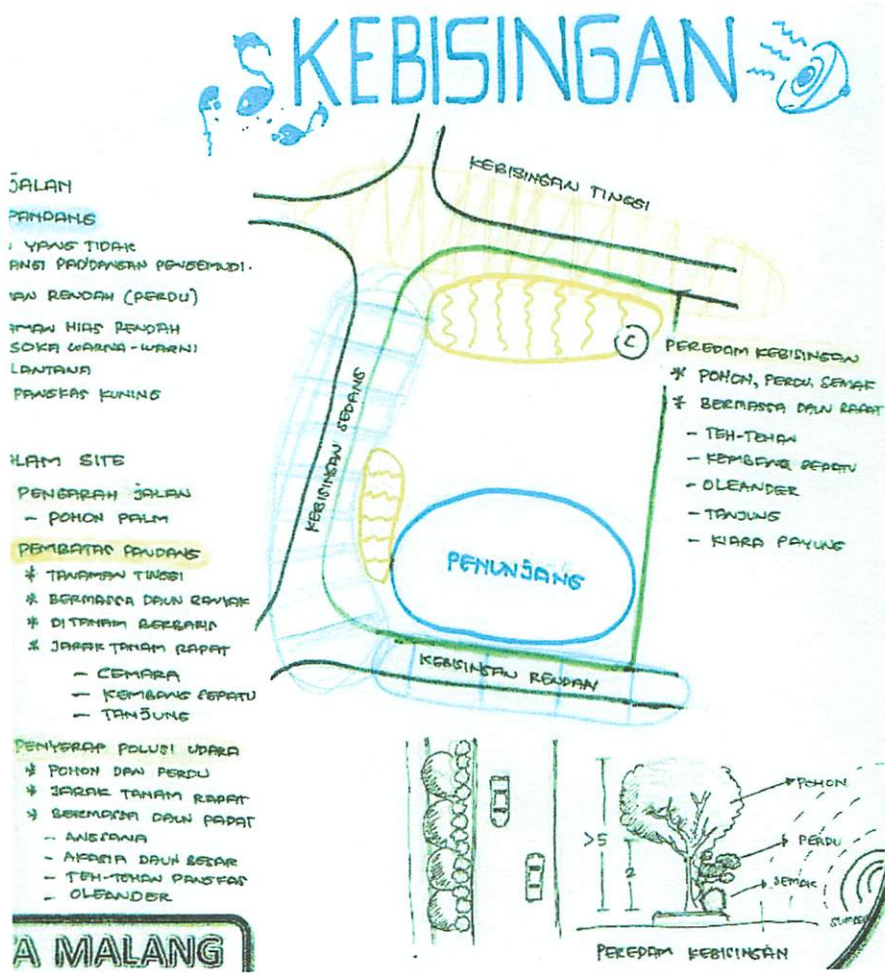 KEBISINGAN
JALAN
PANDANG
YANG TIDAK
ANGI PANDANGAN PENGEMUDI.
AN RENDAH (PERDU)
AMAN HIAS RENDAH
SOKA WARNA-WARNI
LANTANA
PANGKAS KUNING
ALAM SITE
PENGARAH JALAN
- POHON PALM
PEMBATAS PANDANG
* TANAMAN TINGGI
* BERMASSA DAUN
* DITANAM BERBARIS
* JARAK TANAM RAPAT
- CEMARA
- KEMBANG SEPATU
- TANJUNG
PENYERAP POLUSI UDARA
* POHON DAN PERDU
* JARAK TANAM RAPAT
* BERMASSA DAUN PADAT
- ANGSANA
- AKASIA DAUN BESAR
- TEH-TEHAN PANGKAS
- OLEANDER
A MALANG
KEBISINGAN TINGGI
C
KEBISINGAN SEDANG
PENUNJANG
KEBISINGAN RENDAH
PEREDAM KEBISINGAN
* POHON, PERDU, SEMAK
* BERMASSA DAUN RAPAT
- TEH-TEHAN
- KEMBANG SEPATU
- OLEANDER
- TANJUNG
- KIARA PAYUNG
>5
2
POHON
PERDU
SEMAK
SUMBE
PEREDAM KEBISINGAN